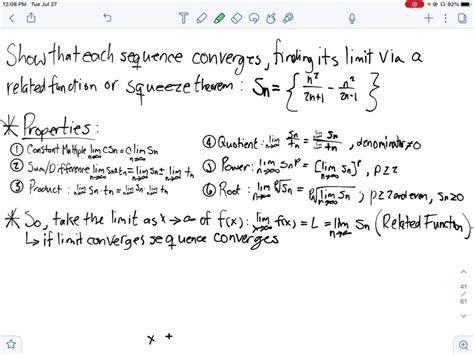 12:08 PM Tue Jul 27
92%
Show that each sequence converges, finding its limit via a
related function or squeeze theorem: Sn = { n²/(2n+1) - n²/(2n-1) }
* Properties:
① Constant Multiple lim n→∞ CSn = C lim n→∞ Sn
② Sum/Difference lim n→∞ Sn ± tn = lim n→∞ Sn ± lim n→∞ tn
③ Product: lim n→∞ Sn · tn = lim n→∞ Sn · lim n→∞ tn
④ Quotient: lim n→∞ Sn/tn = lim n→∞ Sn / lim n→∞ tn, denominator ≠ 0
⑤ Power: lim n→∞ Sn^p = [lim n→∞ Sn]^p, p≥2
⑥ Root: lim n→∞ p√Sn = p√lim n→∞ Sn, p≥2 and even, Sn≥0
* So, take the limit as x→∞ of f(x): lim x→∞ f(x) = L = lim n→∞ Sn (Related Function)
↳ if limit converges sequence converges
x +
41
/
61